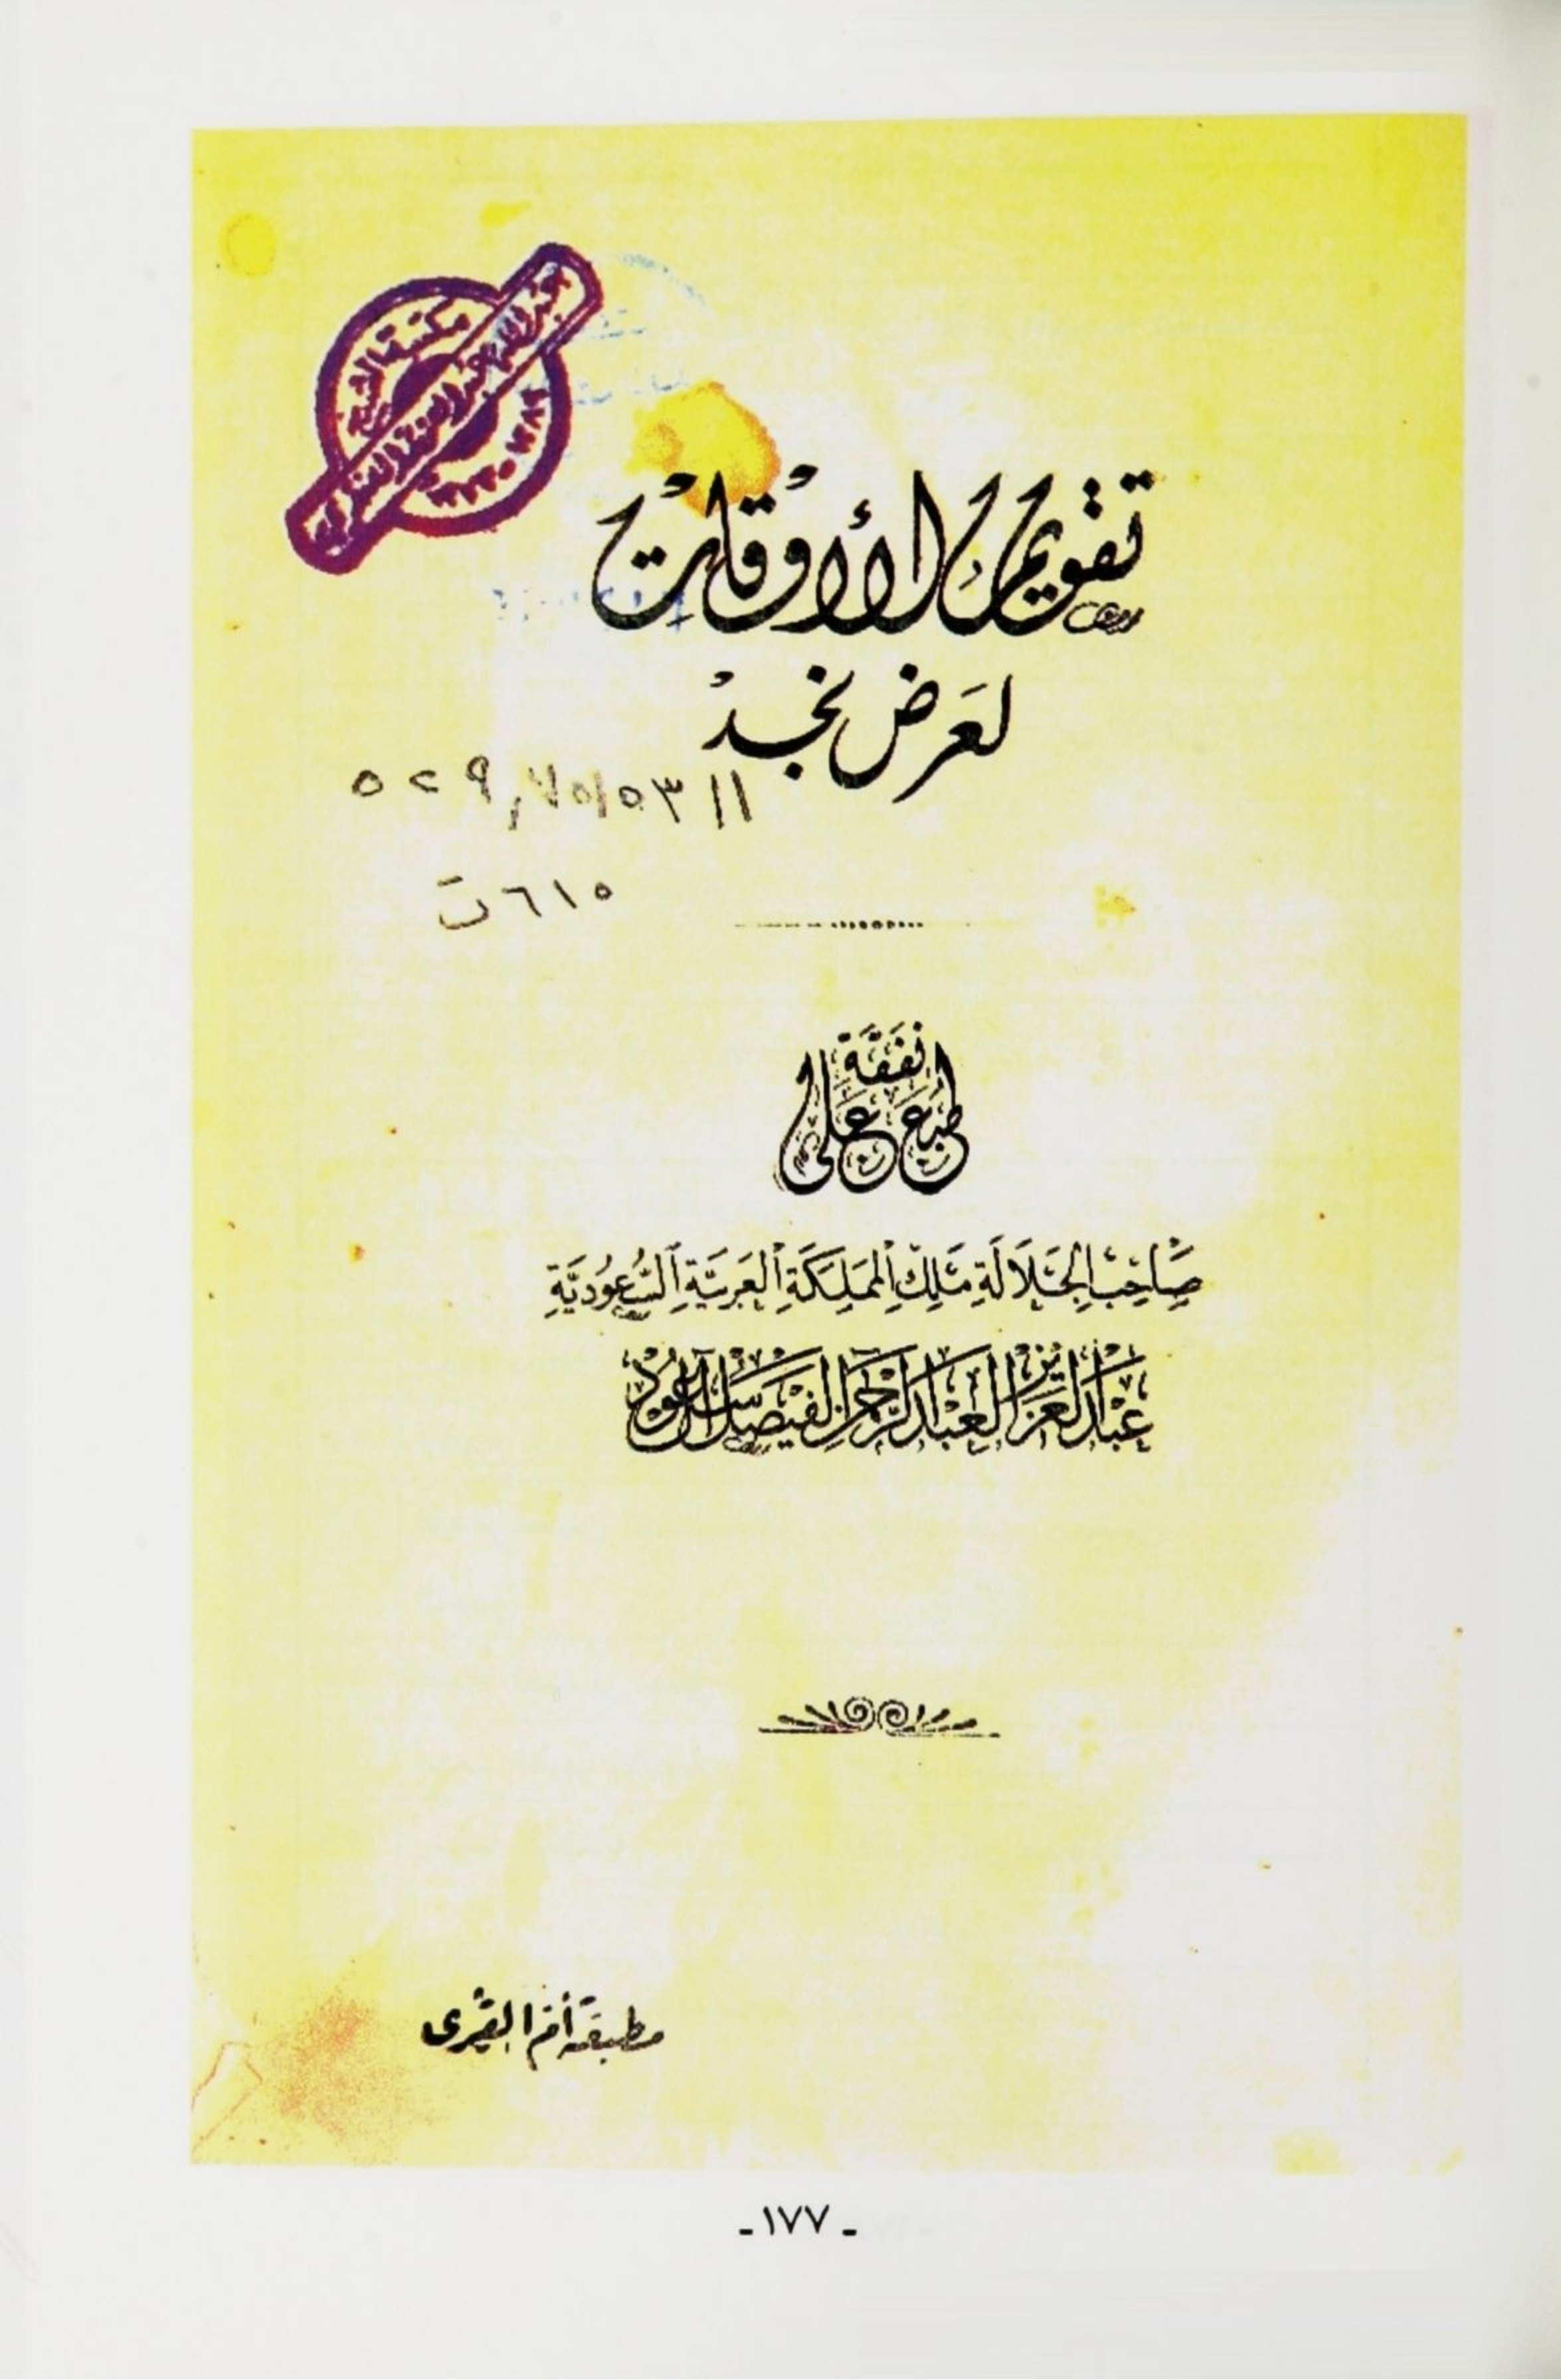 مكتبة الشيخ
تقويم الأوقات
لعرض نجد
٦١٥ت
طبع على نفقة
صَاحِبِ الجَلَالَةِ مَلِكِ المَملَكَةِ العَرَبِيَّةِ السُّعُودِيَّةِ
عبد العزيز العبد الرحمن الفيصل آل سعود
مطبعة أم القرى
- ١٧٧ -